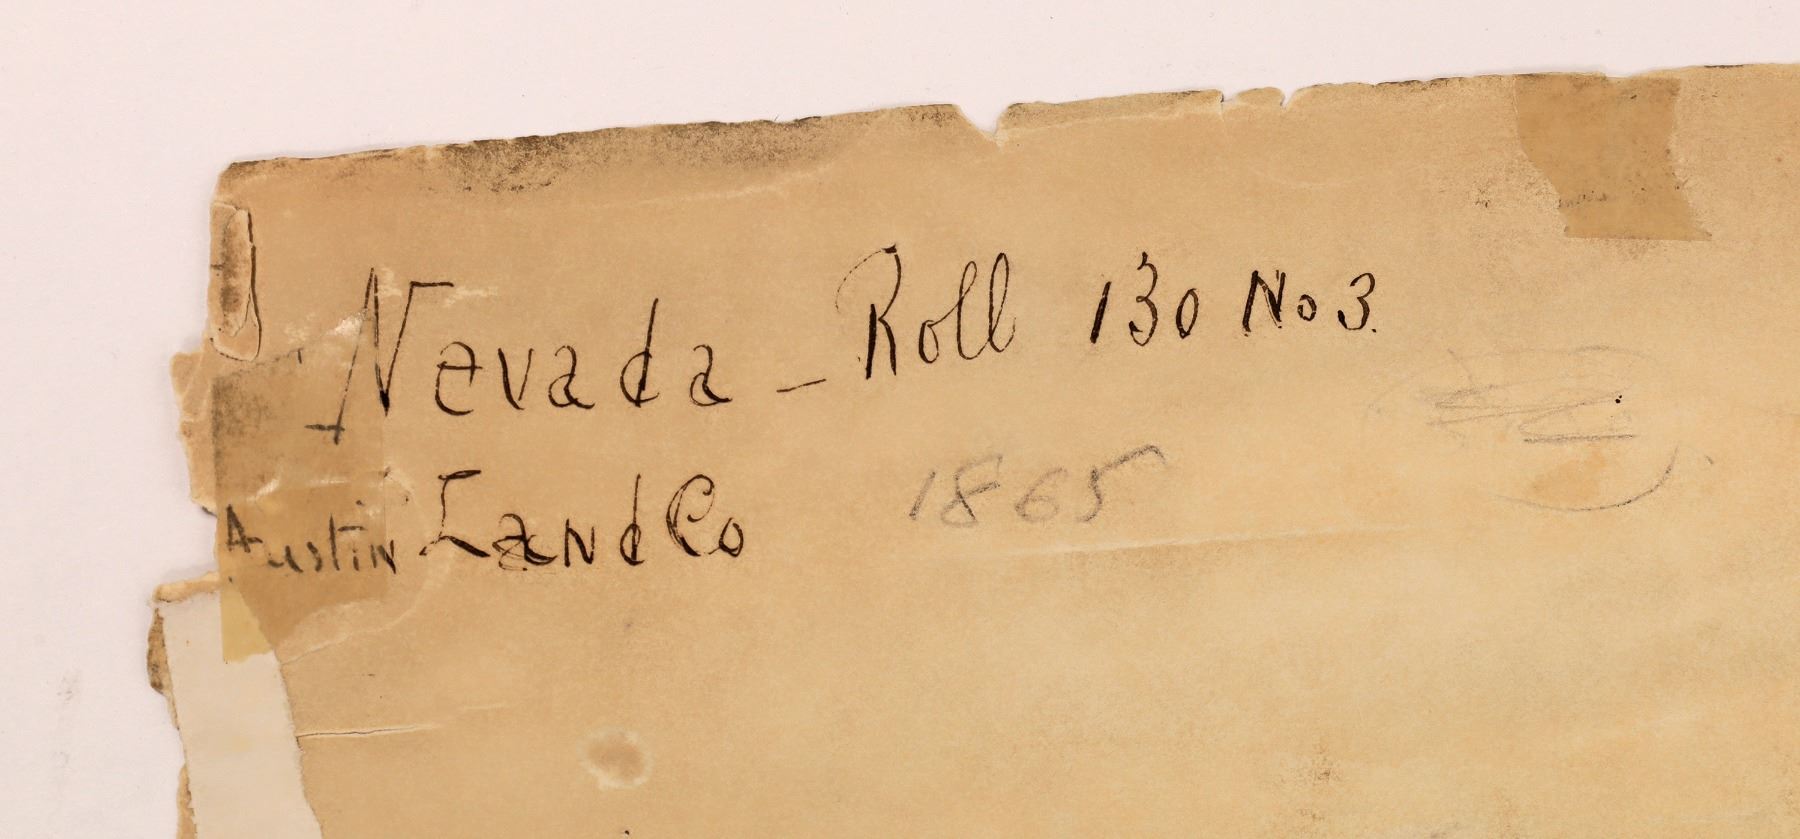 Nevada - Roll 130 No 3.
Austin Land Co 1865